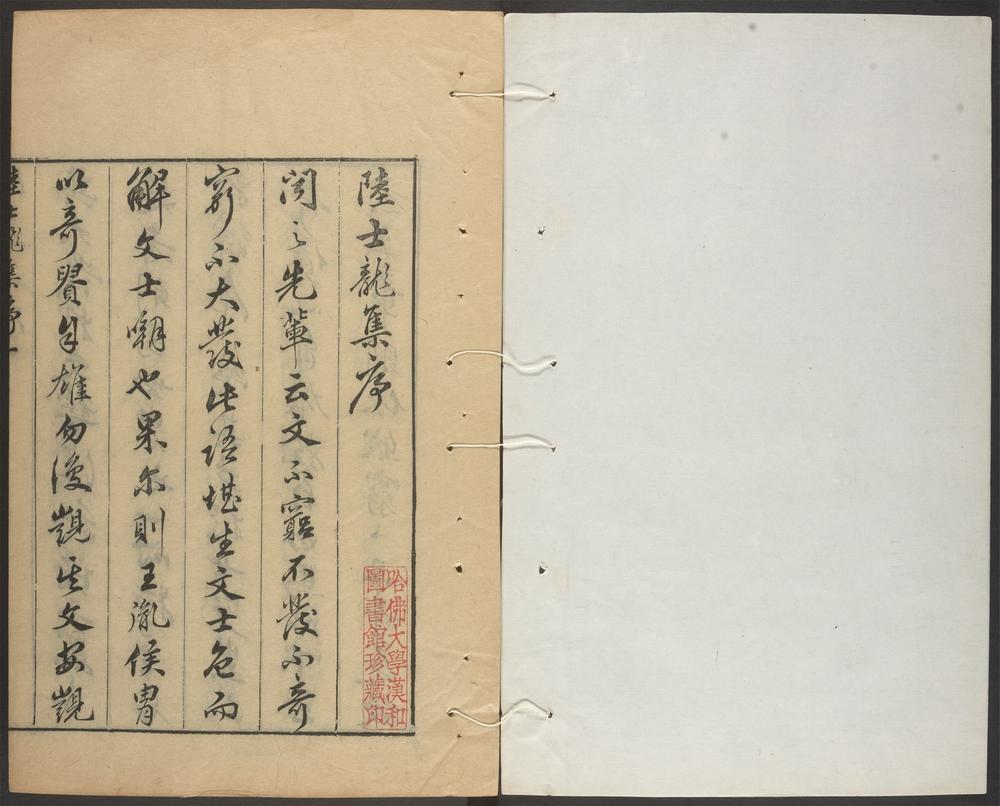 陸士龍集序
聞之先輩云文不窮不發不奇
窮不大發此語堪生文士色而
解文士嘲也果尔則王胤侯胄
以奇譽自雄勿復觀其文安覬
陸士龍集序一
哈佛大學漢和
圖書館珍藏印